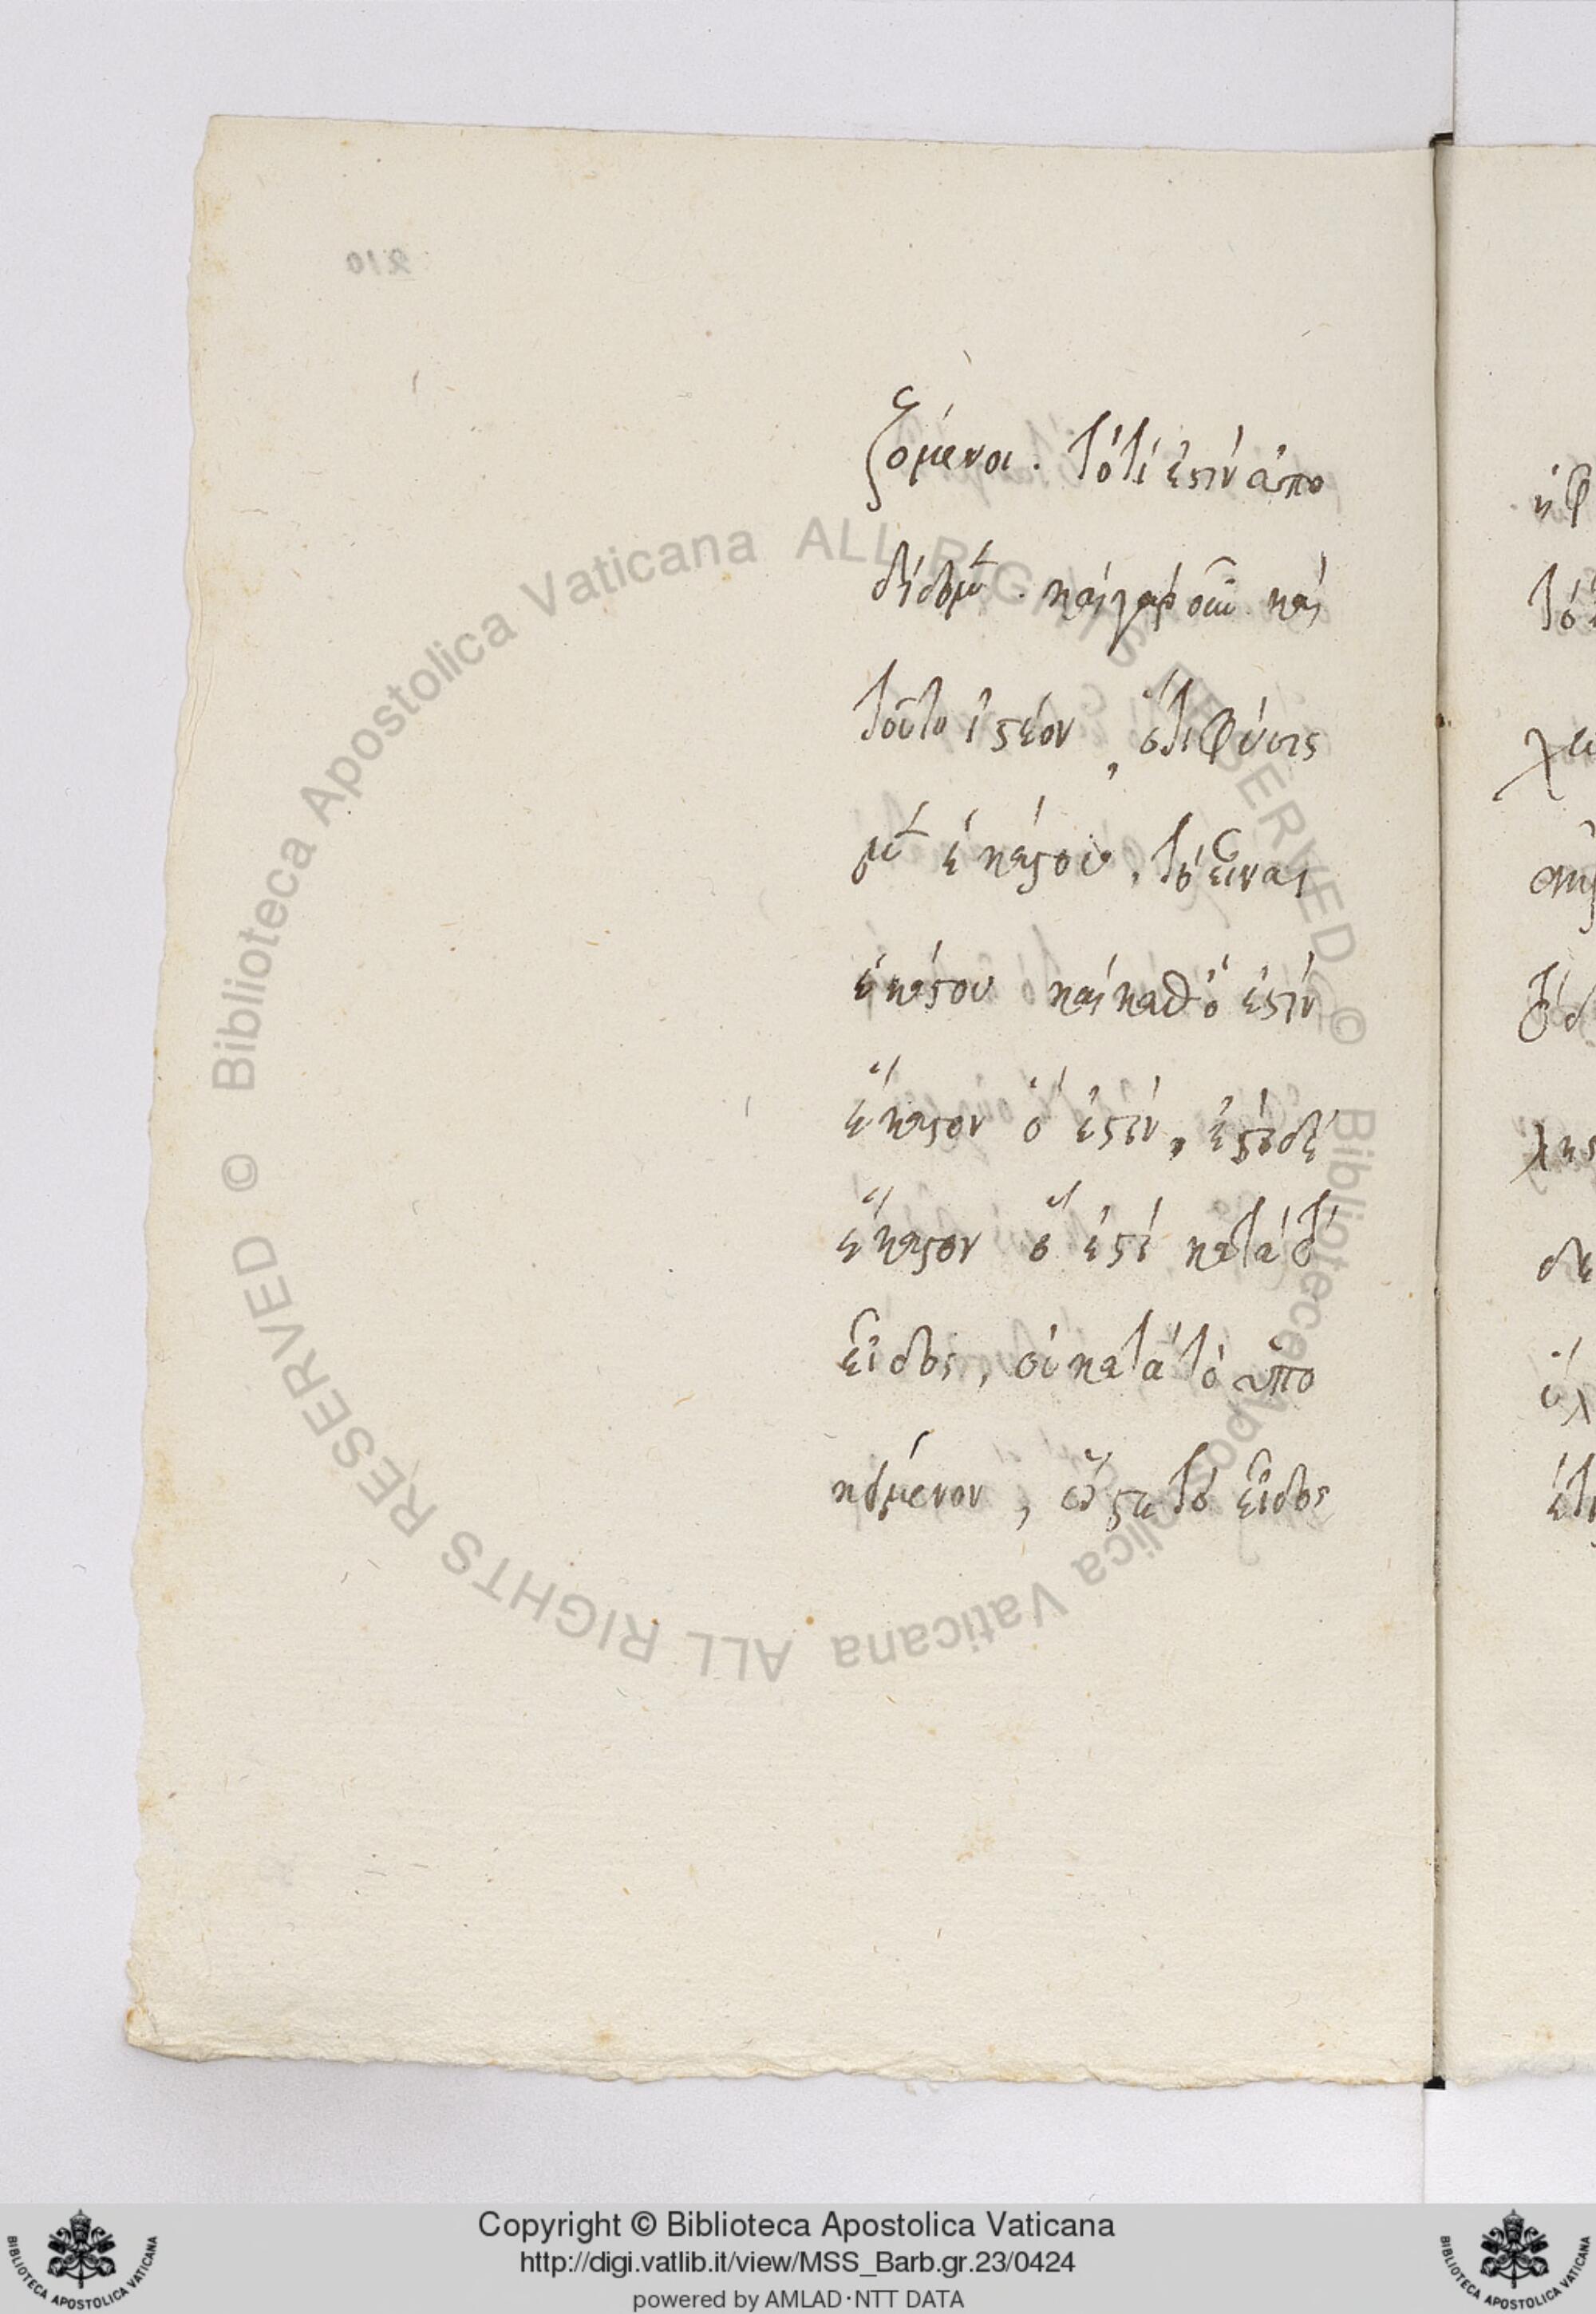 210
ξόμενοι. τὸ τί ἐστὶν ἀπο
δίδομεν. καὶ γὰρ οὖν καὶ
τοῦτο ἰστέον, ὅτι φύσις
μὲν ἑκάστου, τὸ εἶναι
ἑκάστου καὶ καθ' ὅ ἐστὶν
ἕκαστον ὅ ἐστὶν, ἐπειδὴ
ἕκαστον ὅ ἐστὶ κατὰ τὸ
εἶδος, οὐ κατὰ τὸ ὑπο
κείμενον, ὥστε τὸ εἶδος
Biblioteca Apostolica Vaticana ALL RIGHTS RESERVED © Biblioteca Apostolica Vaticana ALL RIGHTS RESERVED ©
Copyright © Biblioteca Apostolica Vaticana
http://digi.vatlib.it/view/MSS_Barb.gr.23/0424
powered by AMLAD·NTT DATA
BIBLIOTECA APOSTOLICA VATICANA
BIBLIOTECA APOSTOLICA VATICANA